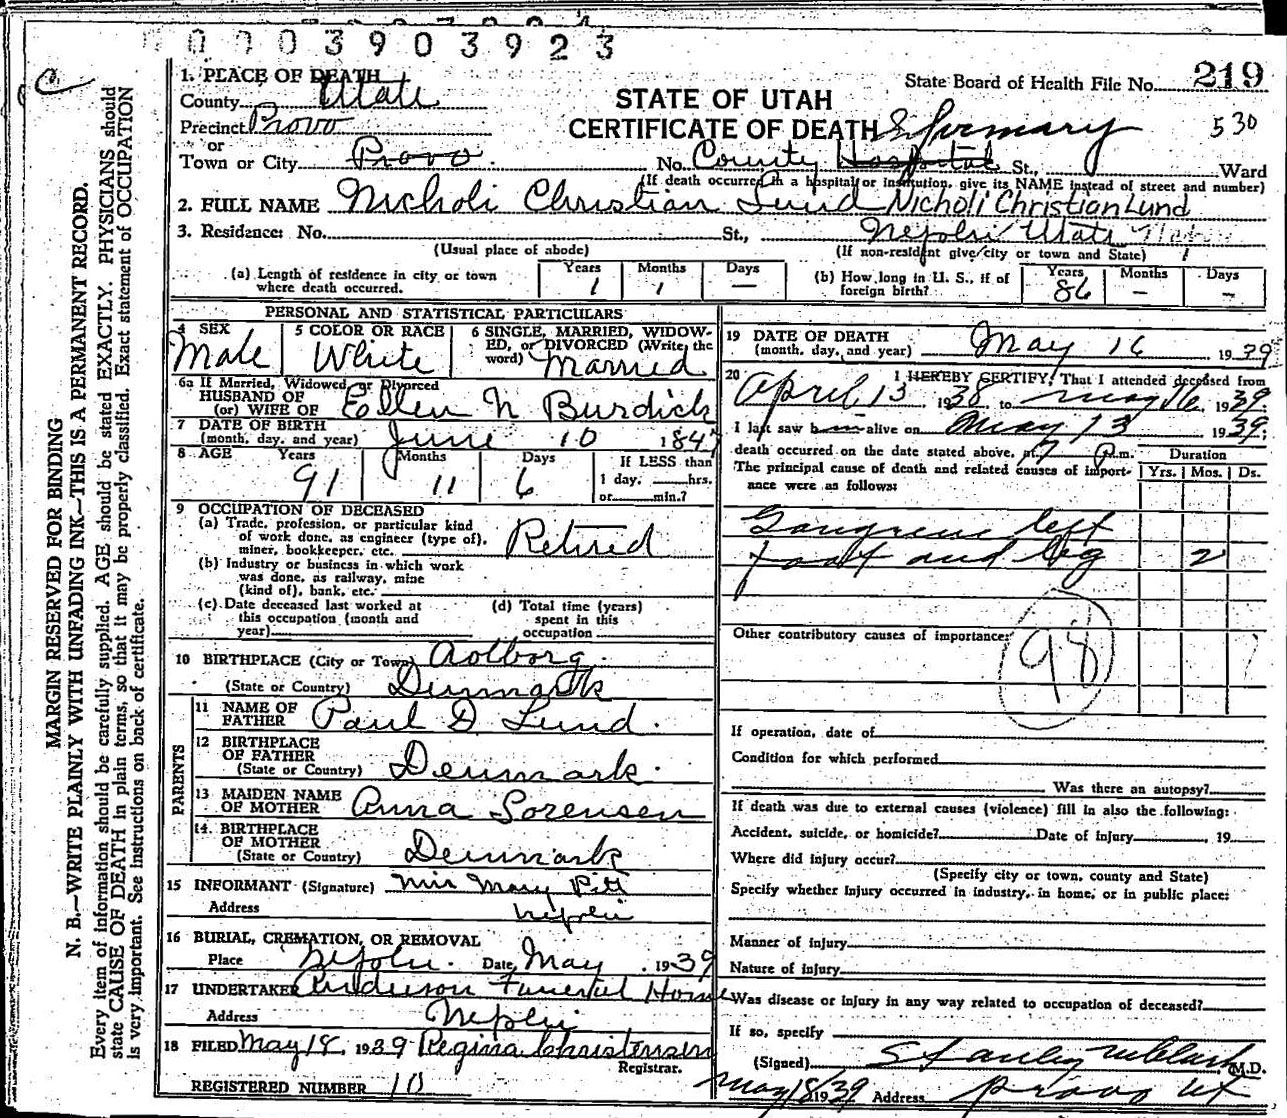 0003903923
1. PLACE OF DEATH
County Utah
Precinct Provo
or
Town or City Provo
State Board of Health File No. 219
STATE OF UTAH
CERTIFICATE OF DEATH
530
No. County Hospital Infirmary St., Ward
(If death occurred in a hospital or institution, give its NAME instead of street and number)
2. FULL NAME Nicholi Christian Lund Nicholi Christian Lund
3. Residence: No. St., Nephi Utah
(Usual place of abode) (If non-resident give city or town and State)
(a) Length of residence in city or town where death occurred. Years 1 Months 1 Days —
(b) How long in U. S., if of foreign birth? Years 86 Months — Days —
PERSONAL AND STATISTICAL PARTICULARS
4 SEX Male
5 COLOR OR RACE White
6 SINGLE, MARRIED, WIDOWED, or DIVORCED (Write the word) Married
6a If Married, Widowed or Divorced
HUSBAND OF
(or) WIFE OF Ellen N Burdick
7 DATE OF BIRTH
(month, day, and year) June 10 1847
8 AGE Years 91 Months 11 Days 6 If LESS than 1 day, hrs. or min.?
9 OCCUPATION OF DECEASED
(a) Trade, profession, or particular kind of work done, as engineer (type of), miner, bookkeeper, etc. Retired
(b) Industry or business in which work was done, as railway, mine (kind of), bank, etc.
(c) Date deceased last worked at this occupation (month and year)
(d) Total time (years) spent in this occupation
10 BIRTHPLACE (City or Town) Aolborg
(State or Country) Denmark
PARENTS
11 NAME OF FATHER Paul D Lund
12 BIRTHPLACE OF FATHER
(State or Country) Denmark
13 MAIDEN NAME OF MOTHER Anna Sorensen
14. BIRTHPLACE OF MOTHER
(State or Country) Denmark
15 INFORMANT (Signature) Mrs Mary Pitt
Address Nephi
16 BURIAL, CREMATION, OR REMOVAL
Place Nephi Date May 1939
17 UNDERTAKER Anderson Funeral Home
Address Nephi
18 FILED May 18, 1939 Regina Christensen
Registrar.
REGISTERED NUMBER 10
19 DATE OF DEATH
(month, day, and year) May 16 1939
20 I HEREBY CERTIFY, That I attended deceased from
April 13 1938 to May 16 1939
I last saw h im alive on May 13 1939;
death occurred on the date stated above, at 7 P.m.
The principal cause of death and related causes of importance were as follows:
Duration
Yrs. Mos. Ds.
Gangrene left
foot and leg 2
Other contributory causes of importance:
98
If operation, date of
Condition for which performed
Was there an autopsy?
If death was due to external causes (violence) fill in also the following:
Accident, suicide, or homicide? Date of injury 19
Where did injury occur?
(Specify city or town, county and State)
Specify whether injury occurred in industry, in home, or in public place:
Manner of injury
Nature of injury
Was disease or injury in any way related to occupation of deceased?
If so, specify
(Signed) Stanley M Clark M.D.
May 18 1939 Address Provo Ut
MARGIN RESERVED FOR BINDING
N. B.—WRITE PLAINLY WITH UNFADING INK—THIS IS A PERMANENT RECORD.
Every item of information should be carefully supplied. AGE should be stated EXACTLY. PHYSICIANS should
state CAUSE OF DEATH in plain terms, so that it may be properly classified. Exact statement of OCCUPATION
is very important. See instructions on back of certificate.